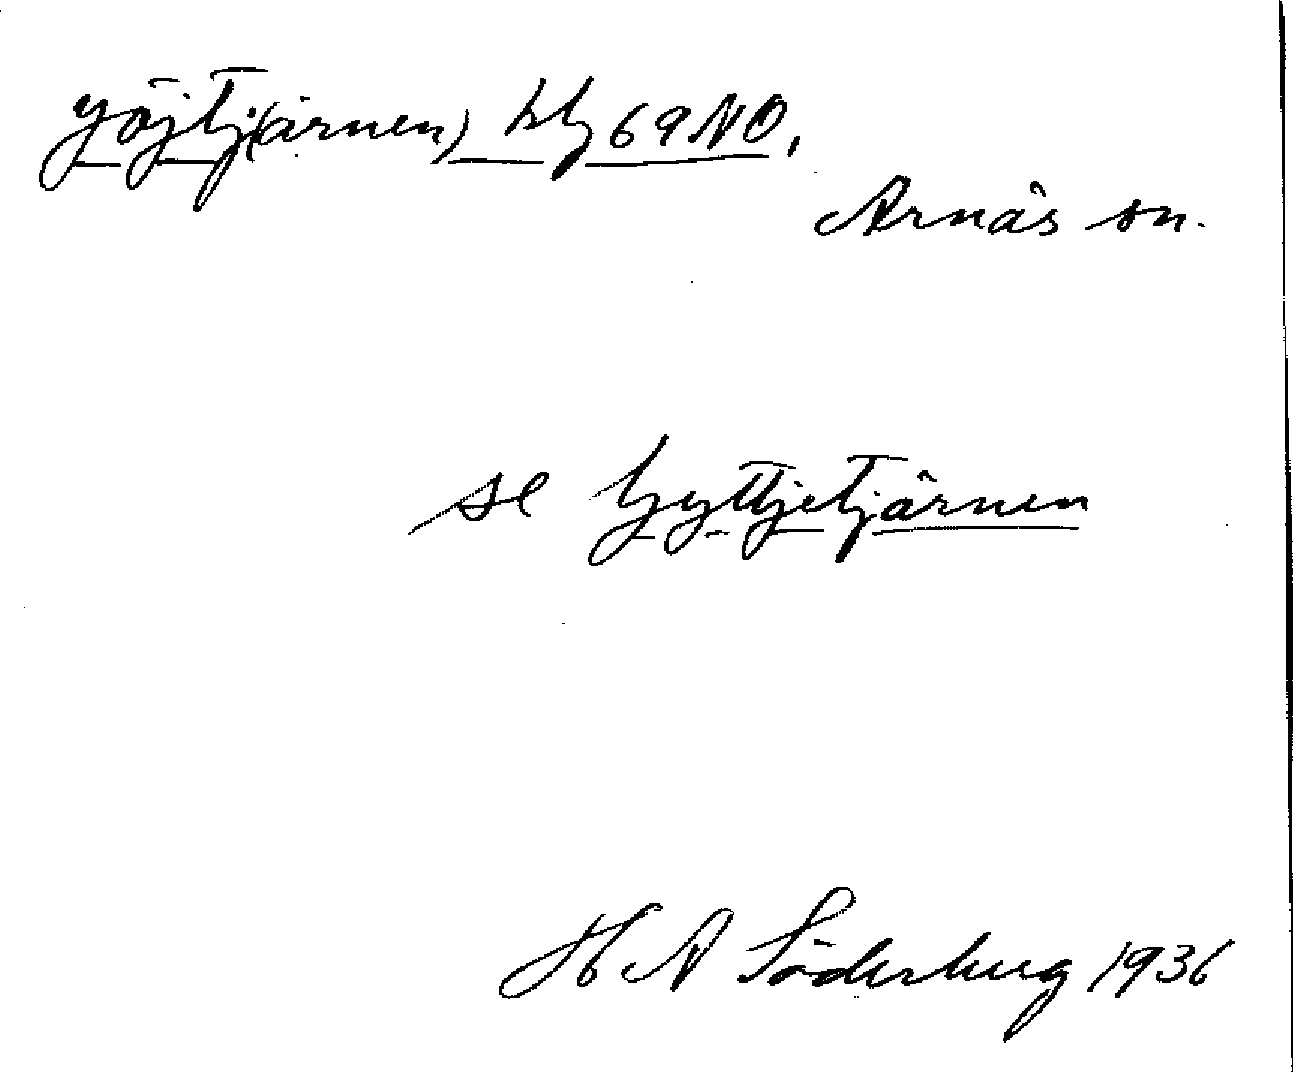 Yöjtj(ärnen) 69 NO,
Arnäs sn.
se Gyttjetjärnen
H A Söderberg 1936